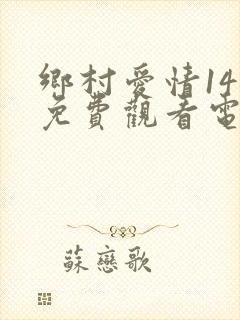 鄉村愛情14
免費觀看電
蘇戀歌